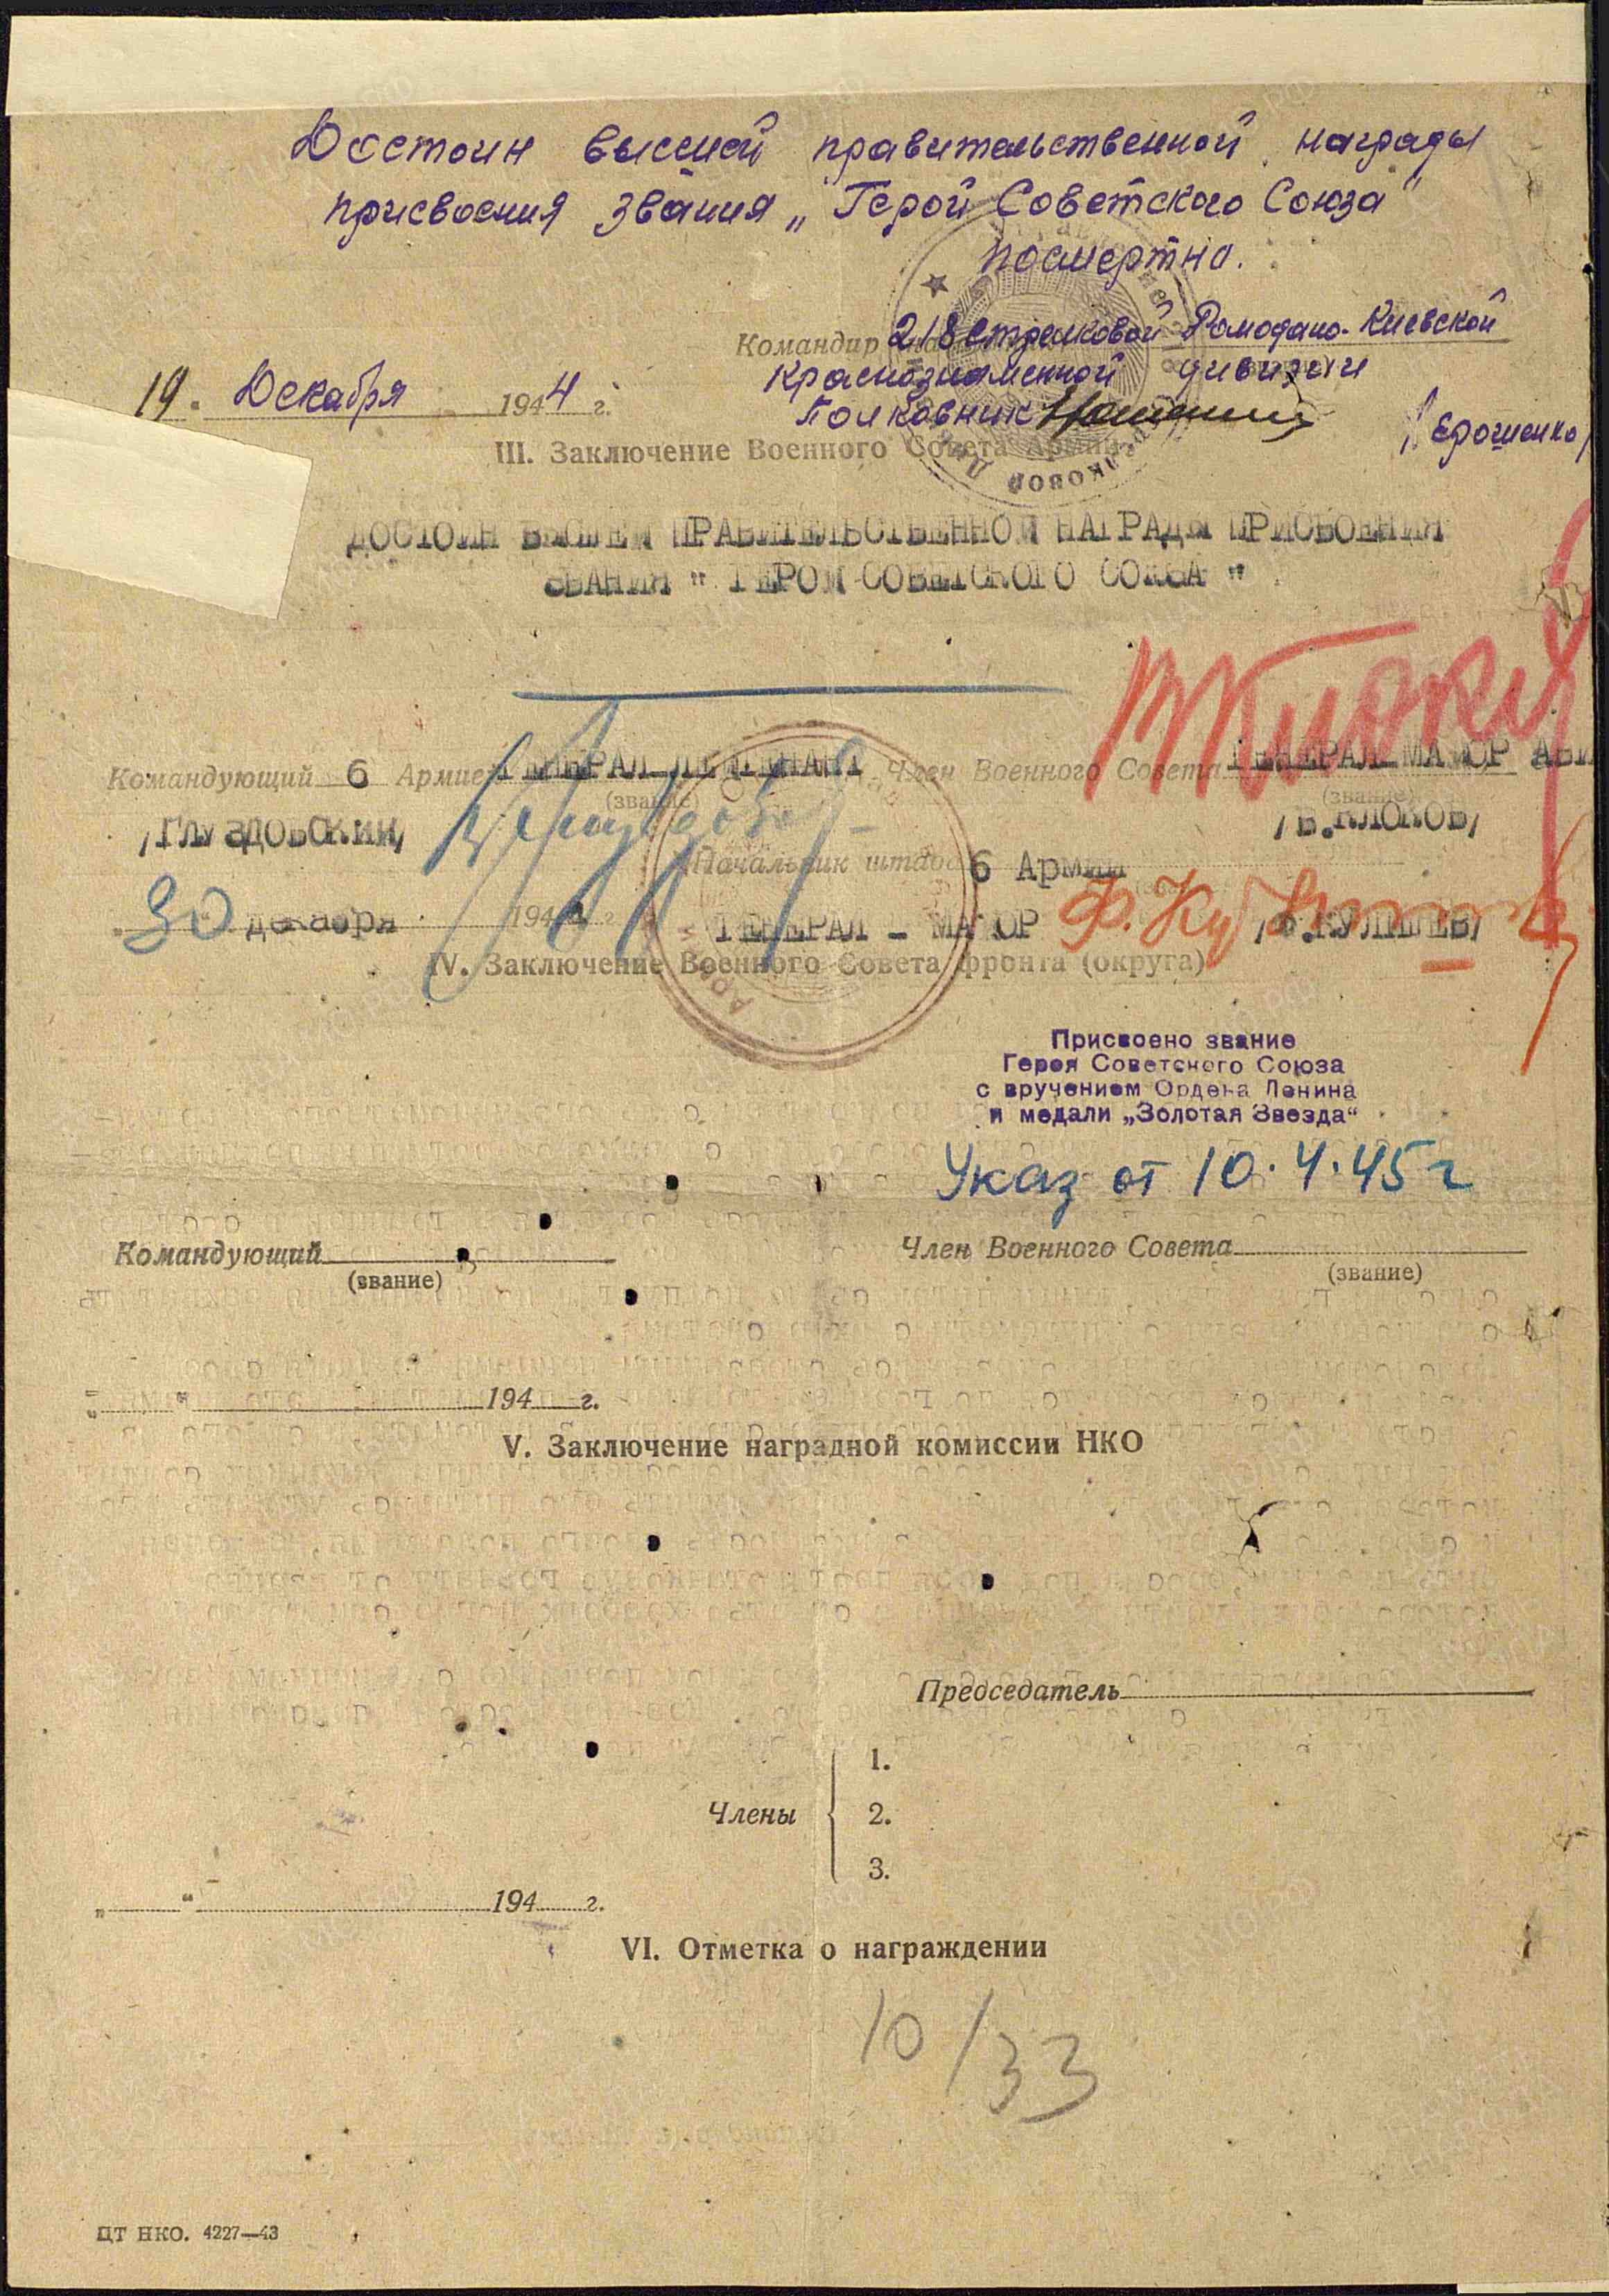 Достоин высшей правительственной награды
присвоения звания „Герой Советского Союза"
посмертно.
Командир 218 стрелковой Ромодано-Киевской
Краснознаменной дивизии
19. Декабря 1944 г.
Полковник
/Ерошенко/
III. Заключение Военного Совета Армии
ДОСТОИН ВЫСШЕЙ ПРАВИТЕЛЬСТВЕННОЙ НАГРАДЫ ПРИСВОЕНИЯ
ЗВАНИЯ " ГЕРОЙ СОВЕТСКОГО СОЮЗА "
Командующий 6 Армией ГЕНЕРАЛ-ЛЕЙТЕНАНТ Член Военного Совета ГЕНЕРАЛ-МАЙОР АВИ
(звание) (звание)
/ГЛУЗДОВСКИЙ/ /В.КЛОКОВ/
Начальник штаба 6 Армии
30 декабря 1944 г.
ГЕНЕРАЛ - МАЙОР Ф. /Ф.КУЛИШЕВ/
IV. Заключение Военного Совета фронта (округа)
Присвоено звание
Героя Советского Союза
с вручением Ордена Ленина
и медали „Золотая Звезда"
Указ от 10.4.45 г
Командующий Член Военного Совета
(звание) (звание)
„ " 194 г.
V. Заключение наградной комиссии НКО
Председатель
Члены
1.
2.
3.
„ " 194 г.
VI. Отметка о награждении
10/33
ЦТ НКО. 4227—43